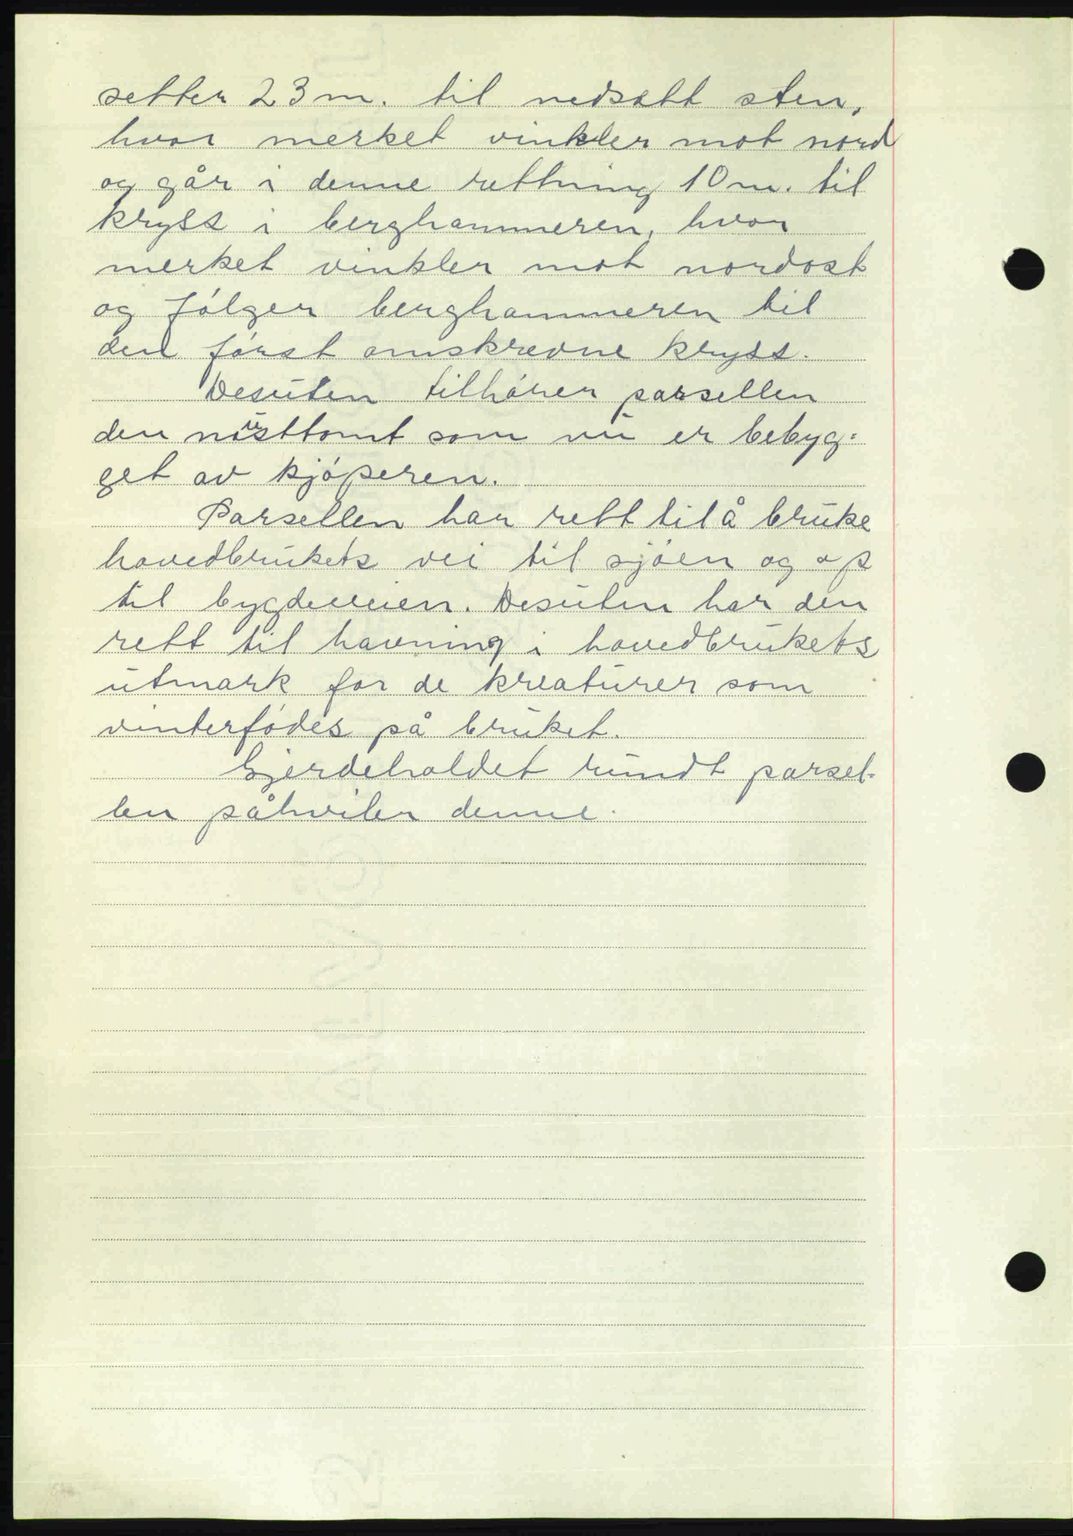 setter 23 m. til nedsatt sten,
hvor merket vinkler mot nord
og går i denne rettning 10 m. til
kryss i berghammeren, hvor
merket vinkler mot nordost
og følger berghammeren til
den først omskrevne kryss.
Desuten tilhører parsellen
den nausttomt som nu er bebyg=
get av kjøperen.
Parsellen har rett til å bruke
hovedbrukets vei til sjøen og op
til bygdeveien. Desuten har den
rett til havning i hovedbrukets
utmark for de kreaturer som
vinterfødes på bruket.
Gjerdeholdet rundt parsel=
len påhviler denne.